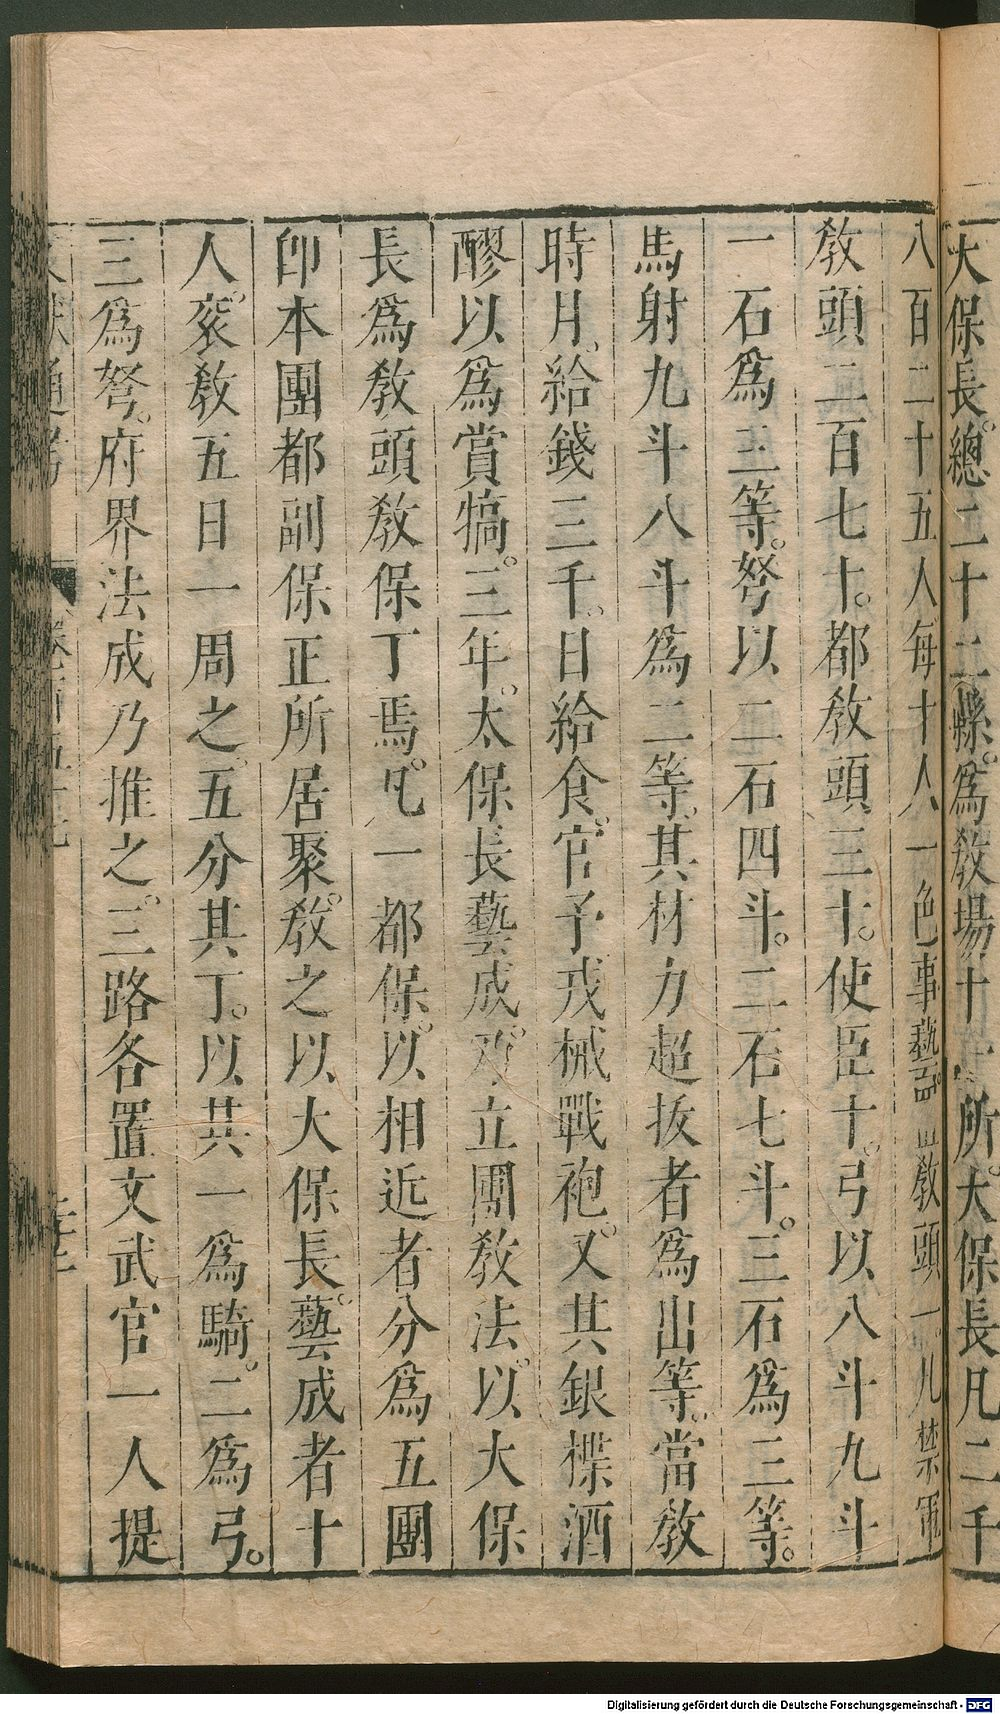 大保長總二十二縣爲教場十一所大保長凡二千
八百二十五人每十人一色事藝置教頭一凡禁軍
教頭二百七十都教頭三十使臣十弓以八斗九斗
一石爲三等弩以二石四斗二石七斗三石爲三等
馬射九斗八斗爲二等其材力超拔者爲出等當教
時月給錢三千日給食官予戎械戰袍又具銀楪酒
醪以爲賞犒三年太保長藝成乃立團教法以大保
長爲教頭教保丁焉凡一都保以相近者分爲五團
卽本團都副保正所居聚教之以大保長藝成者十
人衮教五日一周之五分其丁以其一爲騎二爲弓
三爲弩府界法成乃推之三路各置文武官一人提
文獻通考 卷一百五十三
Digitalisierung gefördert durch die Deutsche Forschungsgemeinschaft - DFG